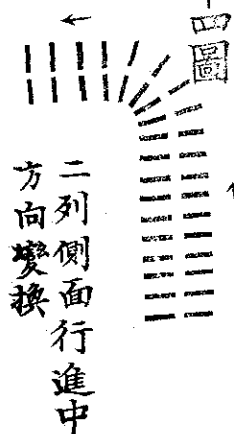 四圖
二列側面行進中
方向變換